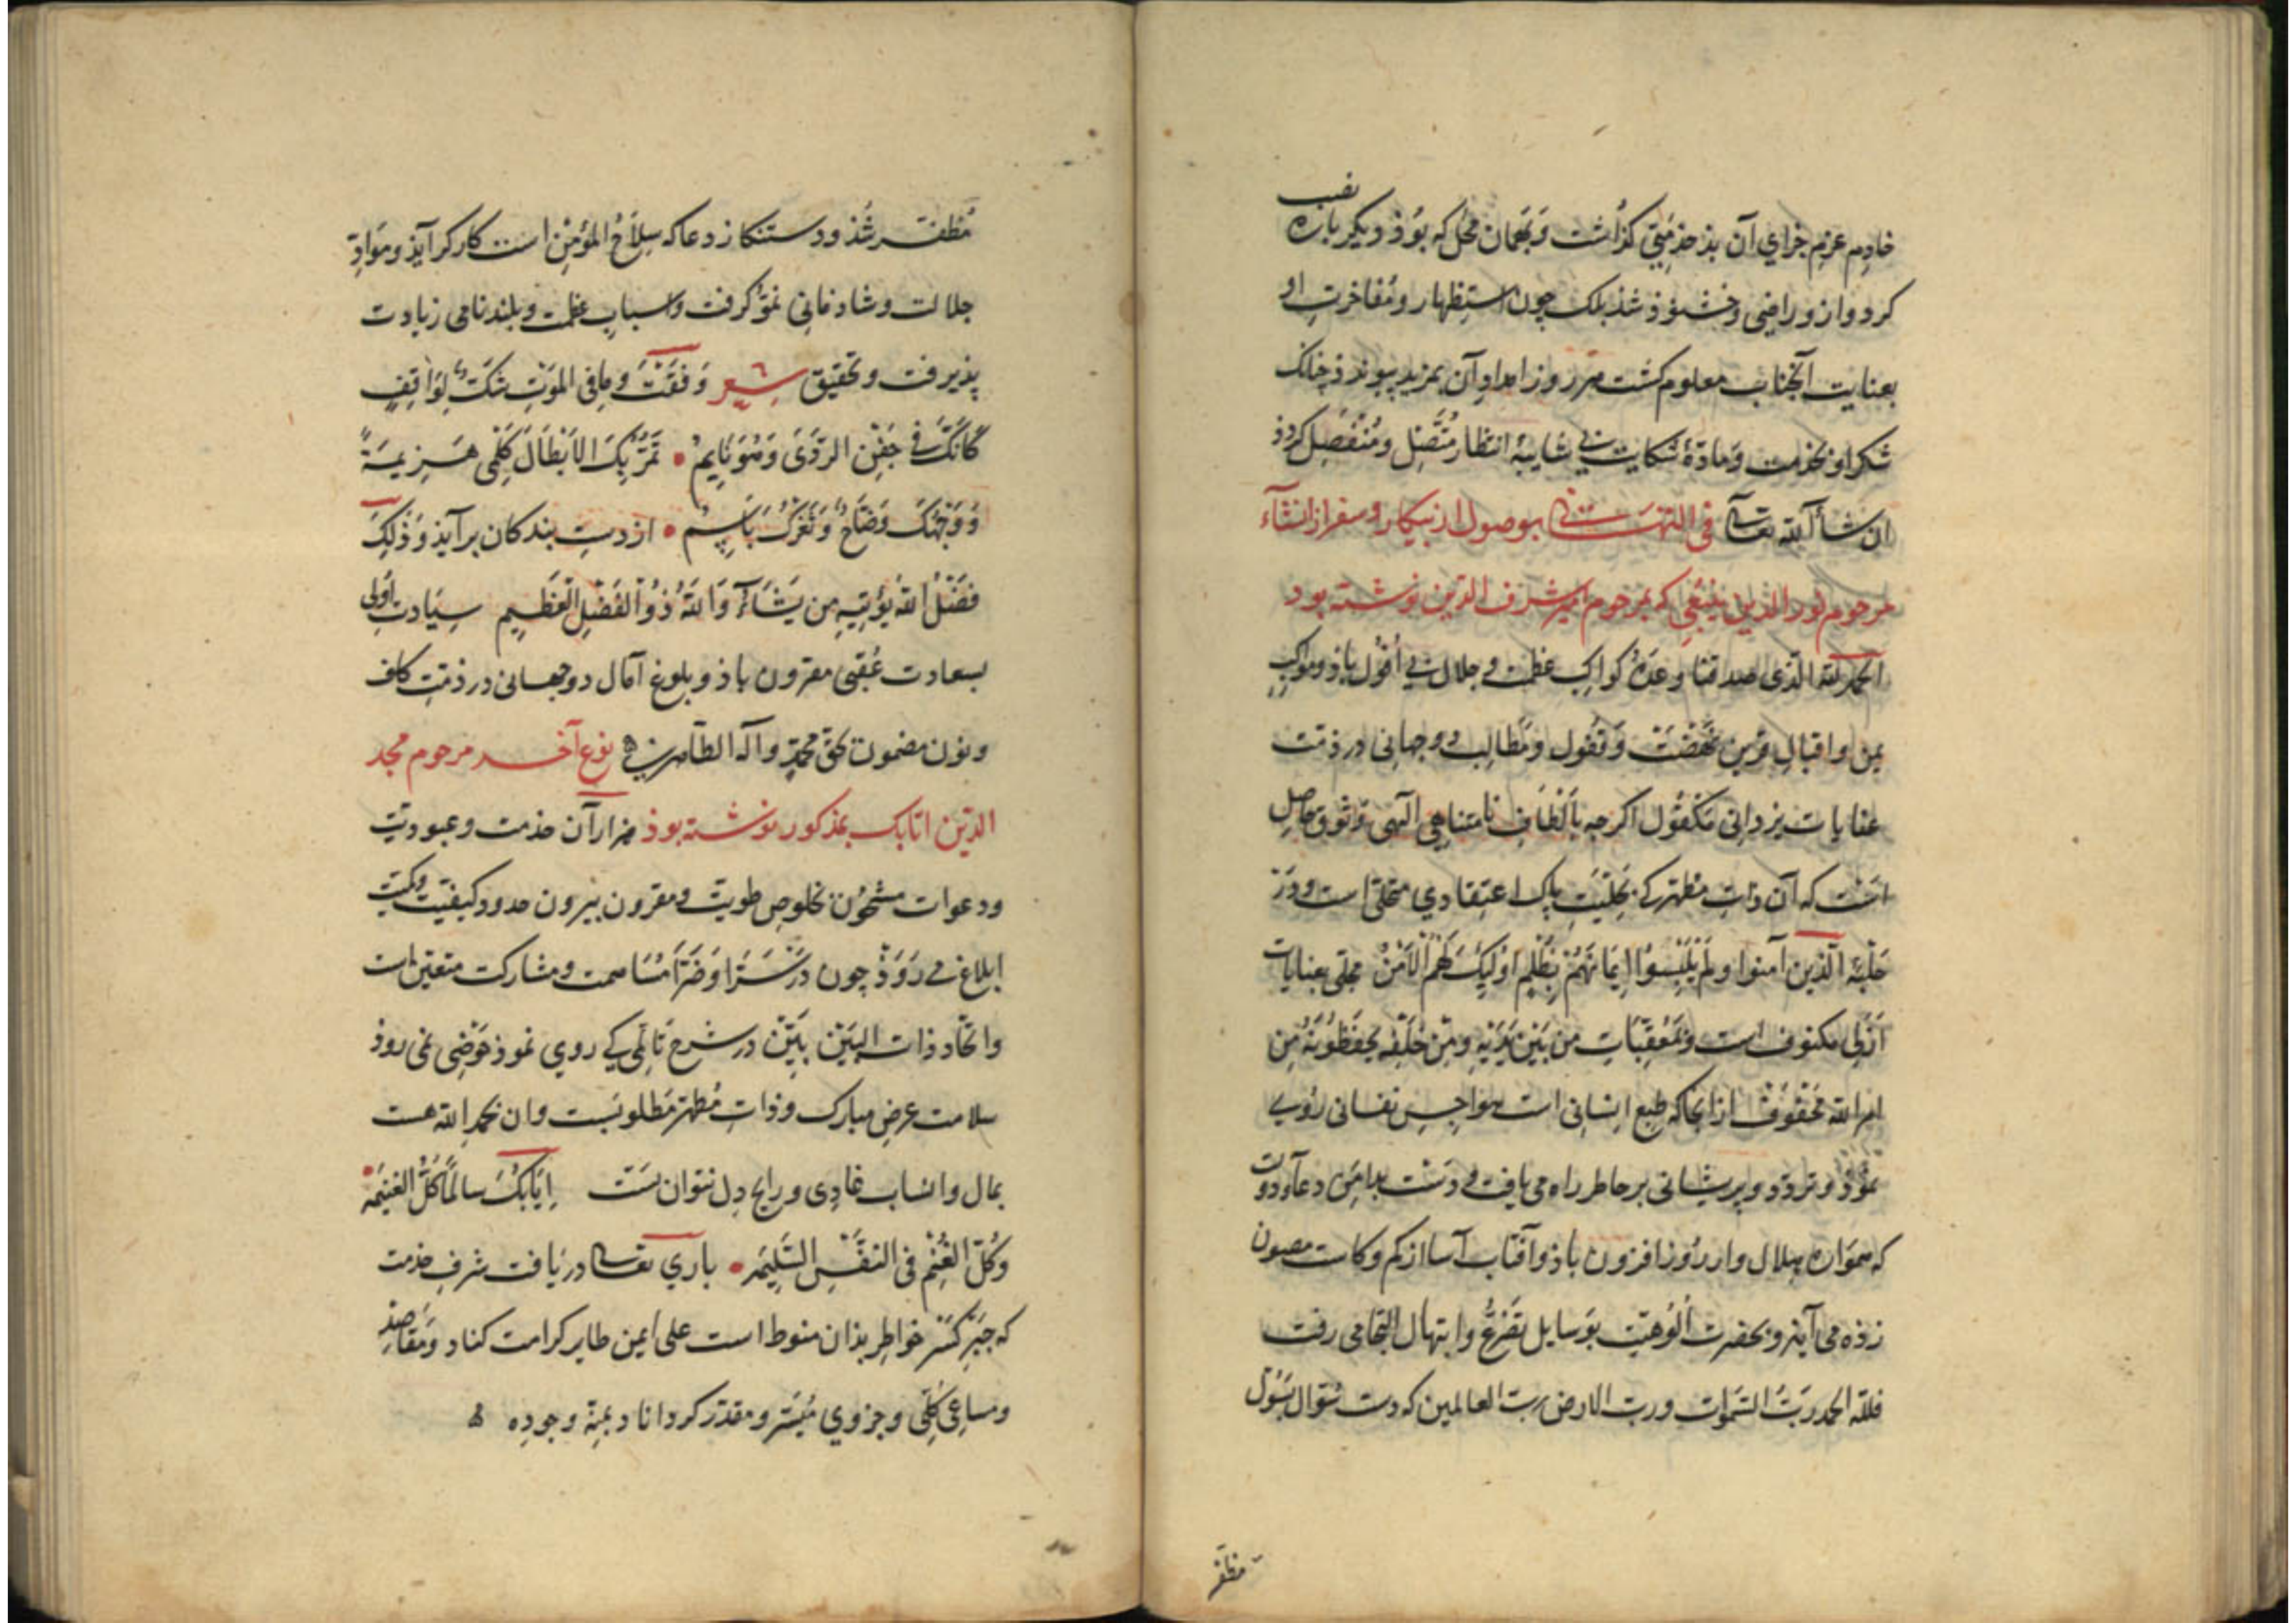 خادم عزیم جزای آن بذ خذمتی کذاشت وبهمان محل که بوذ ودیکر باره نصب
کرد واز و راضی وخشنوذ شذ بلک چون استظهار ومفاخرت او
بعنایت آنجناب معلوم کشت هر روز امداد آن بمزید پیوندذ چنانک
شکر او بخدمت ومادّهٔ شکایت بی شایبهٔ انتظار متّصل ومنفصل کردذ
ان شاء الله تعالی فی التهنیت بوصول از بیکار وسفر از انشاء
مرحوم نور الدین ینبغی که بمرحوم امیر شرف الدین نوشته بود
الحمد لله الذی صدقنا وعده کواکب عظمت و جلال بی افول باذ ومواکب
یمن واقبال قرین نهضت وقفول ومطالب دوجهانی در ذمّت
عنایات یزدانی مکفول اکرچه بالطاف نامتناهی الهی وثوق حاصل
است که آن ذات مطهر کی بحلیت پاک اعتقادی متحلی است ودر
حلبه الّذین آمنوا ولم یلبسوا ایمانهم بظلم اولیک لهم الامن مجلّی بعنایات
ازلی مکنوف است وبمعقّبات من بین یدیه ومن خلفه یحفظونه من
امر الله محفوف از آنجا که طبع انسانی است هواجس نفسانی روی
نموذ وتردّد وپریشانی بر خاطر راه می یافت و دست بدامن دعا ودوات
که همواره هلال وار روز افزون باذ وآفتاب آسا از کم وکاست مصون
زذه می آید وبحضرت الوهیّت بوسایل تضرّع وابتهال التجا می رفت
فلله الحمد ربّ السّموات وربّ الارض ربّ العالمین که دست سؤال بسؤل
مظفّر
مظفّر شذ ودستکار دعا که سلاح المؤمن است کارکر آیذ ومواد
جلالت وشادمانی نموّ کرفت واسباب عظمت وبلندنامی زیادت
پذیرفت وتحقیق شعر وقفت وما فی الموت شکّ لواقف
کانّک فی جفن الردی وهو نایم • تمرّ بک الابطال کلمی هزیمةً
ووجهک وضّاح وثغرک باسم • از دست بندکان برآیذ وذلک
فضل الله یؤتیه من یشاء والله ذو الفضل العظیم سیادت اولی
بسعادت عقبی مقرون باذ وبلوغ آمال دوجهانی در ذمّت کاف
ونون مضمون بحقّ محمّد وآله الطاهرین نوع آخر مرحوم مجد
الدین اتابک بمذکور نوشته بوذ هزاران خذمت وعبودیّت
ودعوات مشحون بخلوص طویت ومقرون بیرون حدود کیفیّت وکمیّت
ابلاغ می روذ چون در سرّا وضرّا مساهمت ومشارکت متعیّن است
واتّحاد ذات البین بیّن در شرح تالمی کی روی نموذ خوضی نمی روذ
سلامت عرض مبارک وذات مطهّر مطلوبست وان بحمد الله هست
بمال وانساب غادی ورایح دل نتوان بست ایابک سالماً کلّ الغنیمه
وکلّ الغنم فی النفس السّلیمه • باری تعالی دریافت شرف خذمت
که جبر کسر خواطر بذان منوط است علی ایمن طایر کرامت کناد ومقاصد
ومساعی کلّی وجزوی میسّر ومقدّر کرداناد بمنّه وجوده